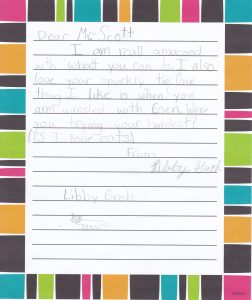 Dear Mr. Scott
I am reall amazed
with what you can do. I also
love your sparkly tie. One
thing I like is when you
arm wrestled with Were
you trying your hardest?
(P.S I love cats)
From
Libby
Libby Groh